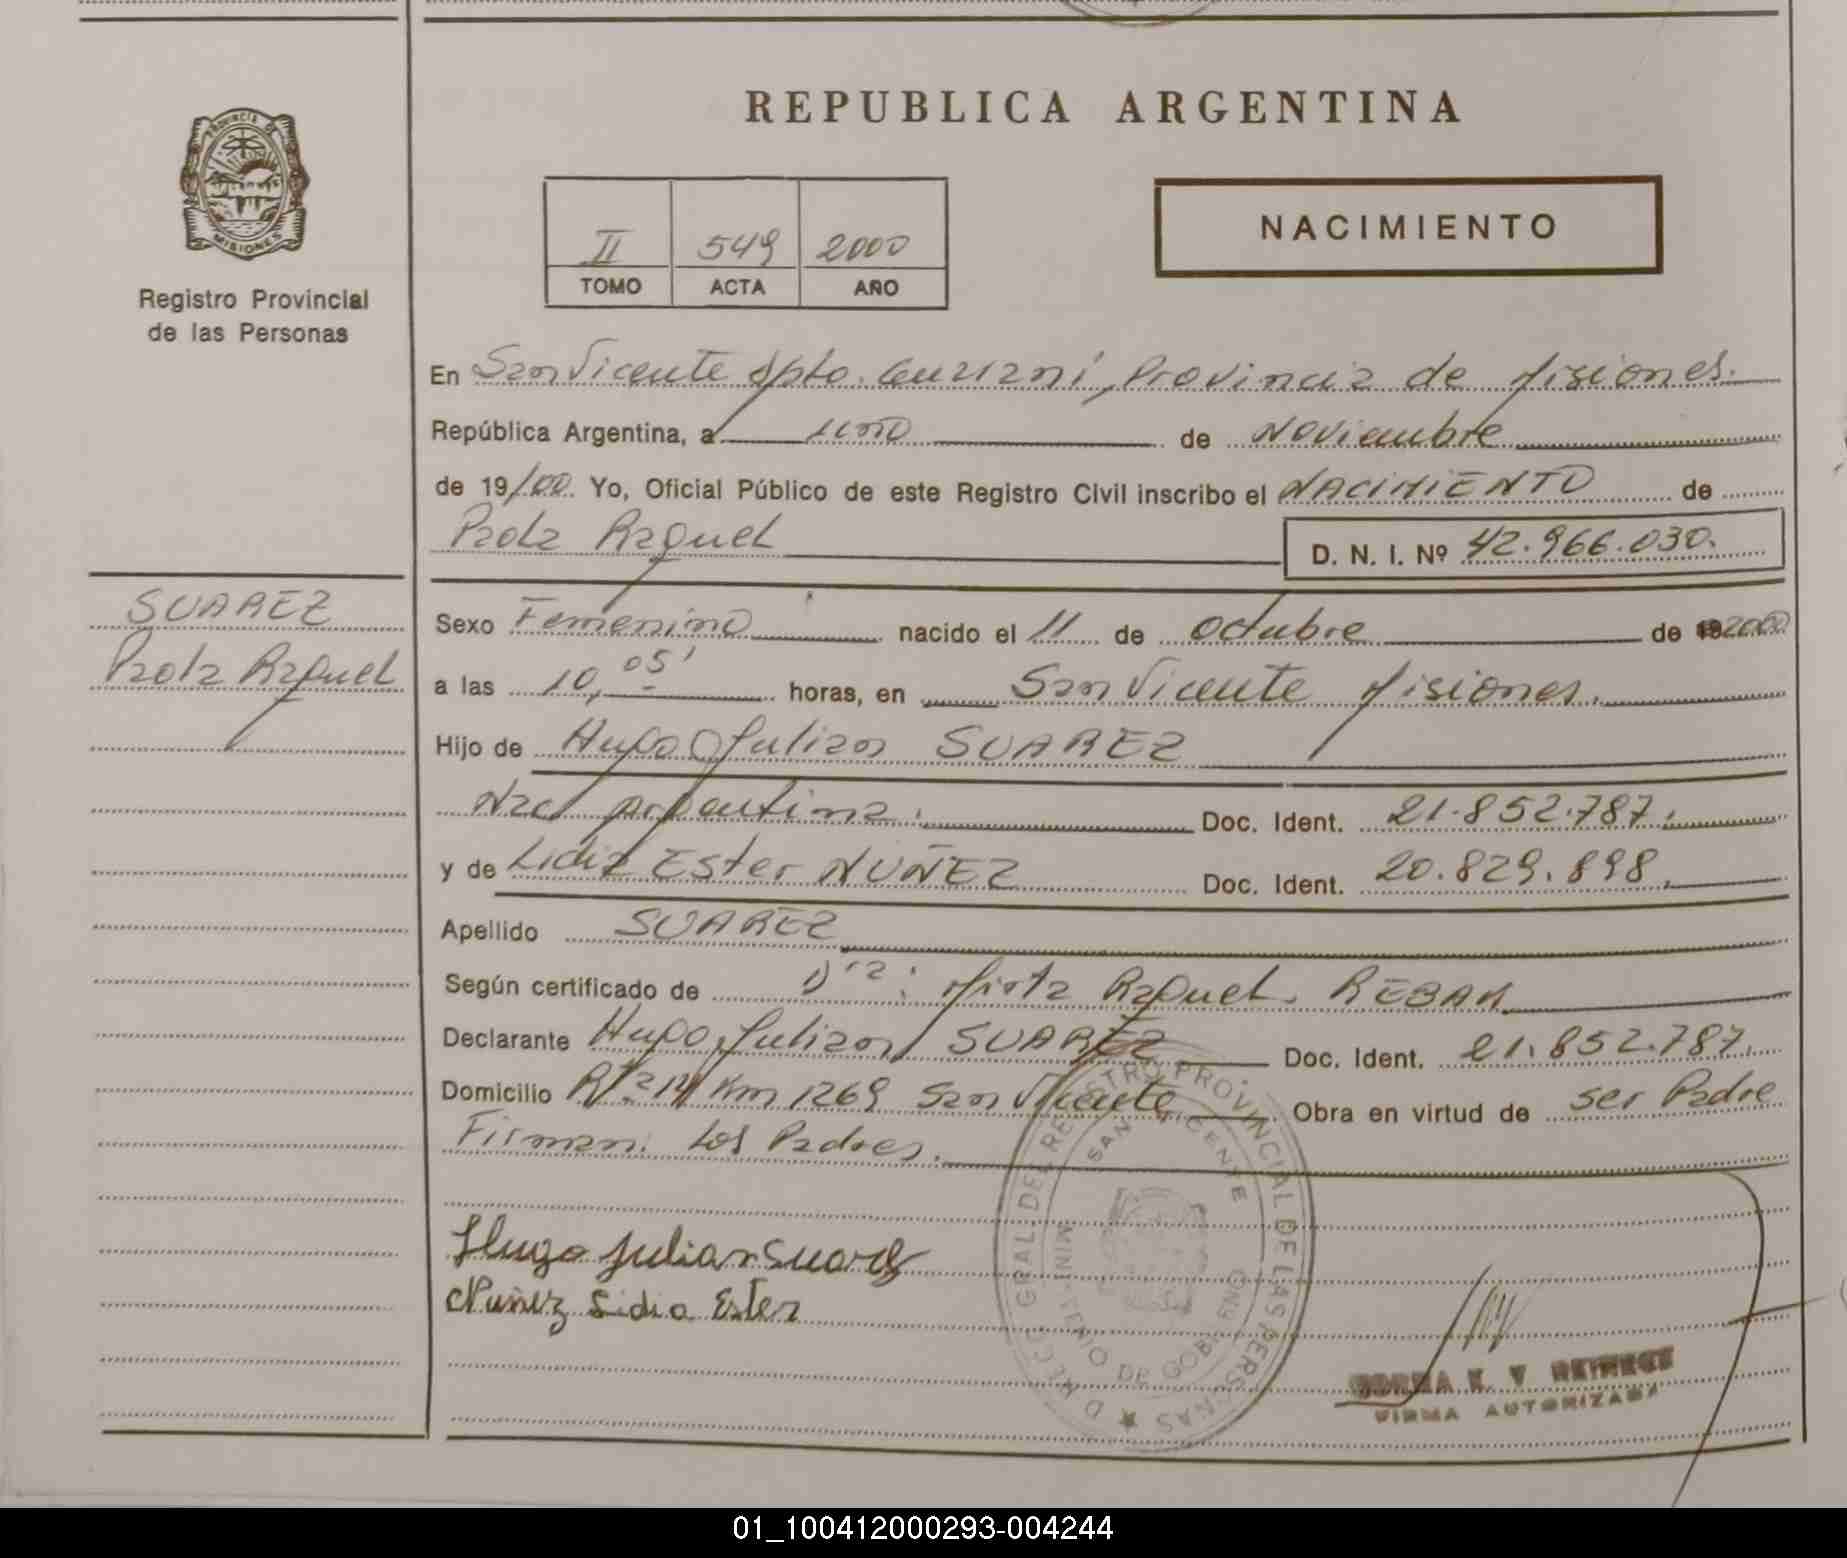 REPUBLICA ARGENTINA
PROVINCIA DE
MISIONES
Registro Provincial
de las Personas
II 549 2000
TOMO ACTA AÑO
NACIMIENTO
En San Vicente Dpto. Guaraní, Provincia de Misiones.
República Argentina, a uno de Noviembre
de 19/00. Yo, Oficial Público de este Registro Civil inscribo el NACIMIENTO de
Paola Raquel D. N. I. Nº 42.966.030.
SUAREZ
Paola Raquel
Sexo Femenino nacido el 11 de octubre de 2000
a las 10,05' horas, en San Vicente Misiones.
Hijo de Hugo Julian SUAREZ
Nac argentina. Doc. Ident. 21.852.787.
y de Lidia Ester NUÑEZ Doc. Ident. 20.829.898.
Apellido SUAREZ
Según certificado de Dra: Mirta Raquel REBAK
Declarante Hugo Julian SUAREZ Doc. Ident. 21.852.787.
Domicilio Rta 14 Km 1269 San Vicente Obra en virtud de ser Padre
Firman: Los Padres.
Hugo Julian Suarez
Nuñez Lidia Ester
DIRECC. GRAL. DEL REGISTRO PROVINCIAL DE LAS PERSONAS ★
SAN VICENTE
MINISTERIO DE GOBIERNO
NORMA K. V. REINECK
FIRMA AUTORIZADA
01_100412000293-004244